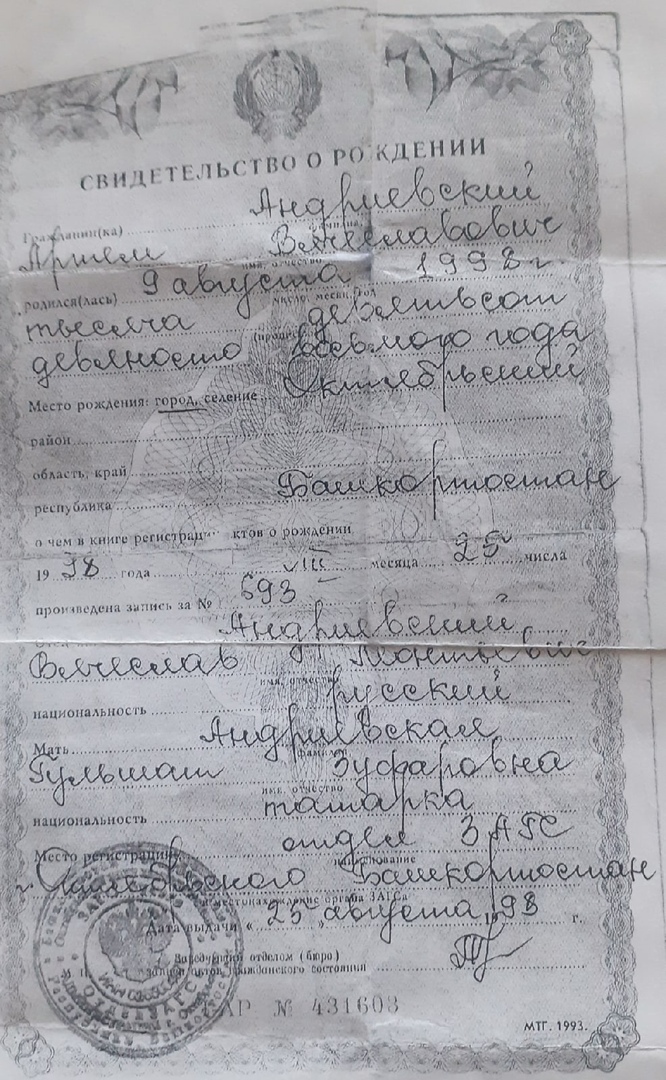 СВИДЕТЕЛЬСТВО О РОЖДЕНИИ
Гражданин(ка) Андриевский
фамилия
Артем Вячеславович
имя, отчество
родился(лась) 9 августа 1998 г.
число, месяц, год
тысяча девятьсот
девяносто восьмого года
Место рождения: город, селение Октябрьский
район
область, край
республика Башкортостан
о чем в книге регистрац ктов о рождении
19 98 года VIII месяца 25 числа
произведена запись за № 693
Андриевский
Вячеслав Леонтьевич
имя, отчество
национальность русский
Мать Андриевская
фамилия
Гульшат Зуфаровна
имя, отчество
национальность татарка
Место регистрации отдел ЗАГС
наименование
г. Октябрьского Башкортостан
местонахождение органа ЗАГСа
Дата выдачи « 25 » августа 19 98 г.
Заведующий отделом (бюро)
записи актов гражданского состояния
АР № 431603
МТГ. 1993.